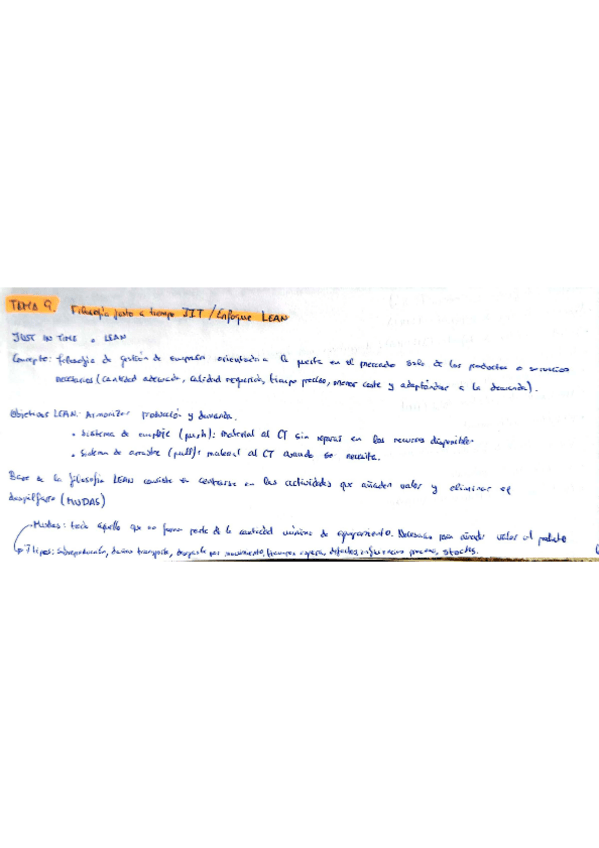 TEMA 9. Filosofía justo a tiempo JIT / Enfoque LEAN
JUST IN TIME o LEAN
Concepto: filosofía de gestión de empresa orientada a la puesta en el mercado solo de los productos o servicios
necesarios (cantidad adecuada, calidad requerida, tiempo preciso, menor coste y adaptándose a la demanda).
Objetivos LEAN: Armonizar producción y demanda.
• Sistema de empuje (push): material al CT sin reparar en los recursos disponibles.
• Sistema de arrastre (pull): material al CT cuando se necesita.
Base de la filosofía LEAN consiste en centrarse en las actividades que añaden valor y eliminar el
despilfarro (MUDAS)
Mudas: todo aquello que no forma parte de la cantidad mínima de equipamiento. Necesario para añadir valor al producto
7 tipos: sobreproducción, transporte, por movimiento, tiempos espera, defectos, proceso, stocks.